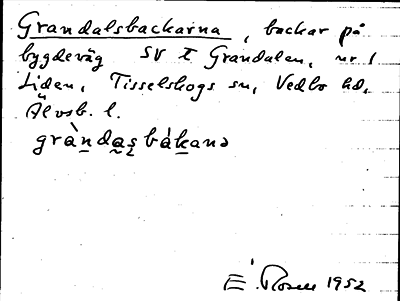 Grandalsbackarna, backar på
bygdeväg SV t Grandalen, nr 1
Liden, Tisselskogs sn, Vedbo hd,
Älvsb. l.
gràndas̱báḵanə
E. Rosell 1952